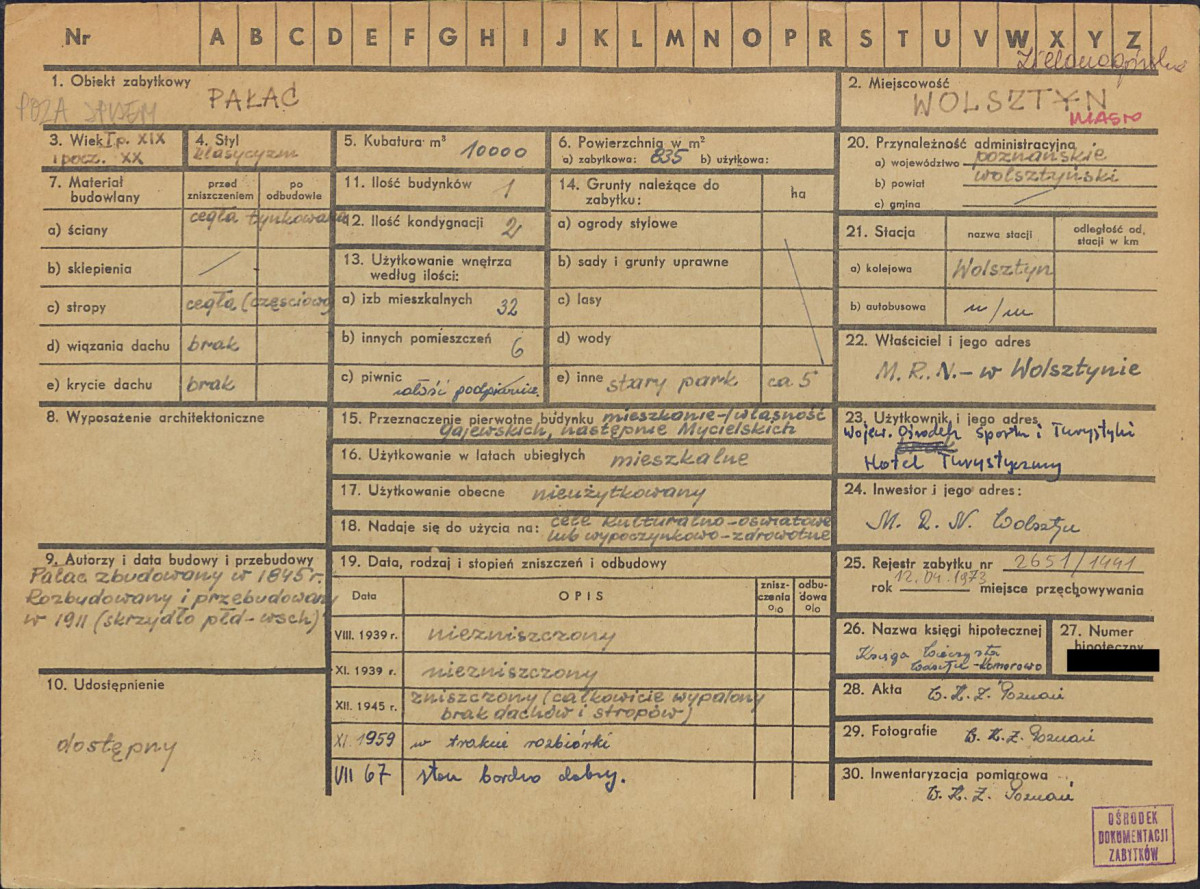 Nr A B C D E F G H I J K L M N O P R S T U V W X Y Z
Zielonogórskie
1. Obiekt zabytkowy
POZA SPISEM
PAŁAC
2. Miejscowość
WOLSZTYN
MIASTO
3. Wiek I p. XIX
i pocz. XX
4. Styl
klasycyzm
5. Kubatura m³ 10000
6. Powierzchnia w m²
a) zabytkowa: 635 b) użytkowa:
7. Materiał budowlany
przed zniszczeniem
po odbudowie
a) ściany cegła tynkowana
b) sklepienia /
c) stropy cegła (częściowo)
d) wiązania dachu brak
e) krycie dachu brak
8. Wyposażenie architektoniczne
9. Autorzy i data budowy i przebudowy
Pałac zbudowany w 1845 r.
Rozbudowany i przebudowany
w 1911 (skrzydło płd-wsch)
10. Udostępnienie
dostępny
11. Ilość budynków 1
12. Ilość kondygnacji 2
13. Użytkowanie wnętrza
według ilości:
a) izb mieszkalnych 32
b) innych pomieszczeń 6
c) piwnic całość podpiwnicz.
14. Grunty należące do
zabytku:
ha
a) ogrody stylowe
b) sady i grunty uprawne
c) lasy
d) wody
e) inne stary park ca 5
15. Przeznaczenie pierwotne budynku mieszkanie-/własność
Gajewskich, następnie Mycielskich
16. Użytkowanie w latach ubiegłych mieszkalne
17. Użytkowanie obecne nieużytkowany
18. Nadaje się do użycia na: cele kulturalno-oświatowe
lub wypoczynkowo-zdrowotne
19. Data, rodzaj i stopień zniszczeń i odbudowy
Data OPIS zniszczenia % odbudowa %
VIII. 1939 r. niezniszczony
XI. 1939 r. niezniszczony
XII. 1945 r. zniszczony (całkowicie wypalony
brak dachów i stropów)
XI 1959 w trakcie rozbiórki
VII 67 stan bardzo dobry.
20. Przynależność administracyjna
a) województwo poznańskie
b) powiat wolsztyński
c) gmina /
21. Stacja
nazwa stacji
odległość od, stacji w km
a) kolejowa Wolsztyn
b) autobusowa
22. Właściciel i jego adres
M. R. N. - w Wolsztynie
23. Użytkownik i jego adres
Wojew. Ośrodek Sportu i Turystyki
Hotel Turystyczny
24. Inwestor i jego adres:
M. R. N. Wolsztyn
25. Rejestr zabytku nr 2651/1441
rok 12.04.1973 miejsce przechowywania
26. Nazwa księgi hipotecznej
Księga Wieczysta
Wolsztyn-Komorowo
27. Numer
hipoteczny
28. Akta W. K. Z. Poznań
29. Fotografie W. K. Z. Poznań
30. Inwentaryzacja pomiarowa
W. K. Z. Poznań
OŚRODEK
DOKUMENTACJI
ZABYTKÓW